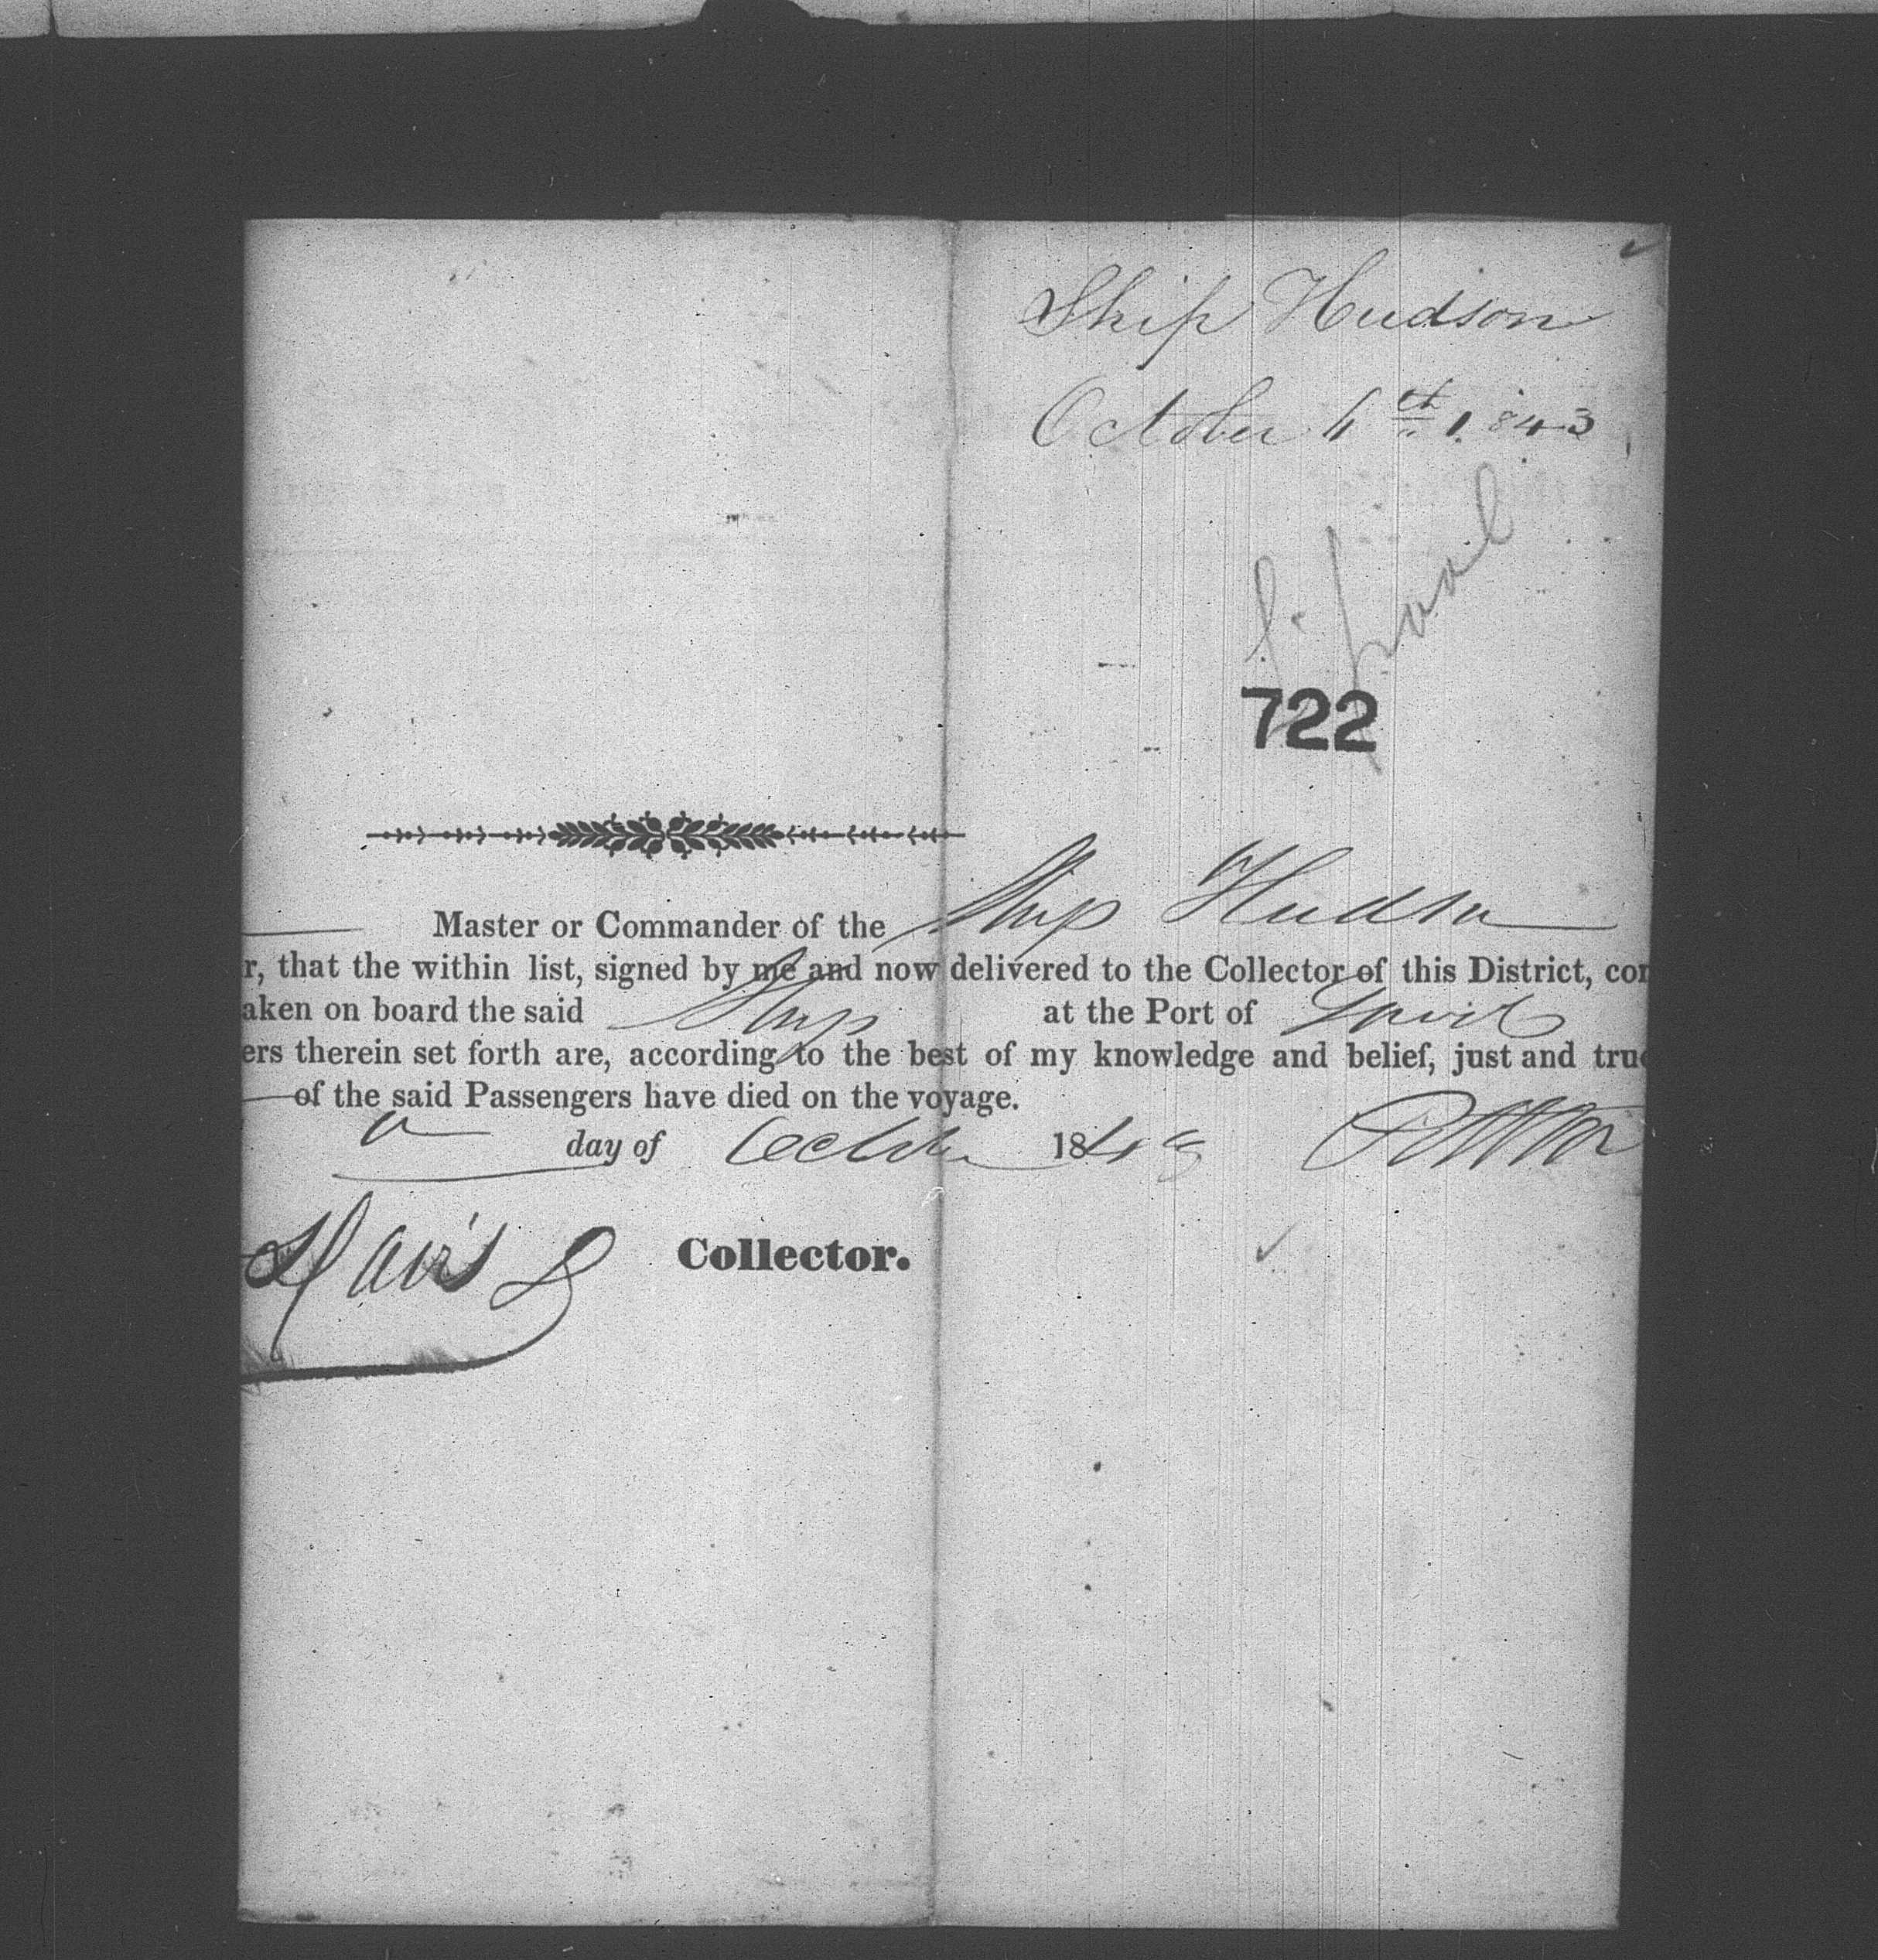 Ship Hudson
October 4th 1843
L.pool
722
Master or Commander of the Ship Hudson
r, that the within list, signed by me and now delivered to the Collector of this District, con
aken on board the said Ship at the Port of
ers therein set forth are, according to the best of my knowledge and belief, just and true
of the said Passengers have died on the voyage.
day of October 1843
Davis
Collector.